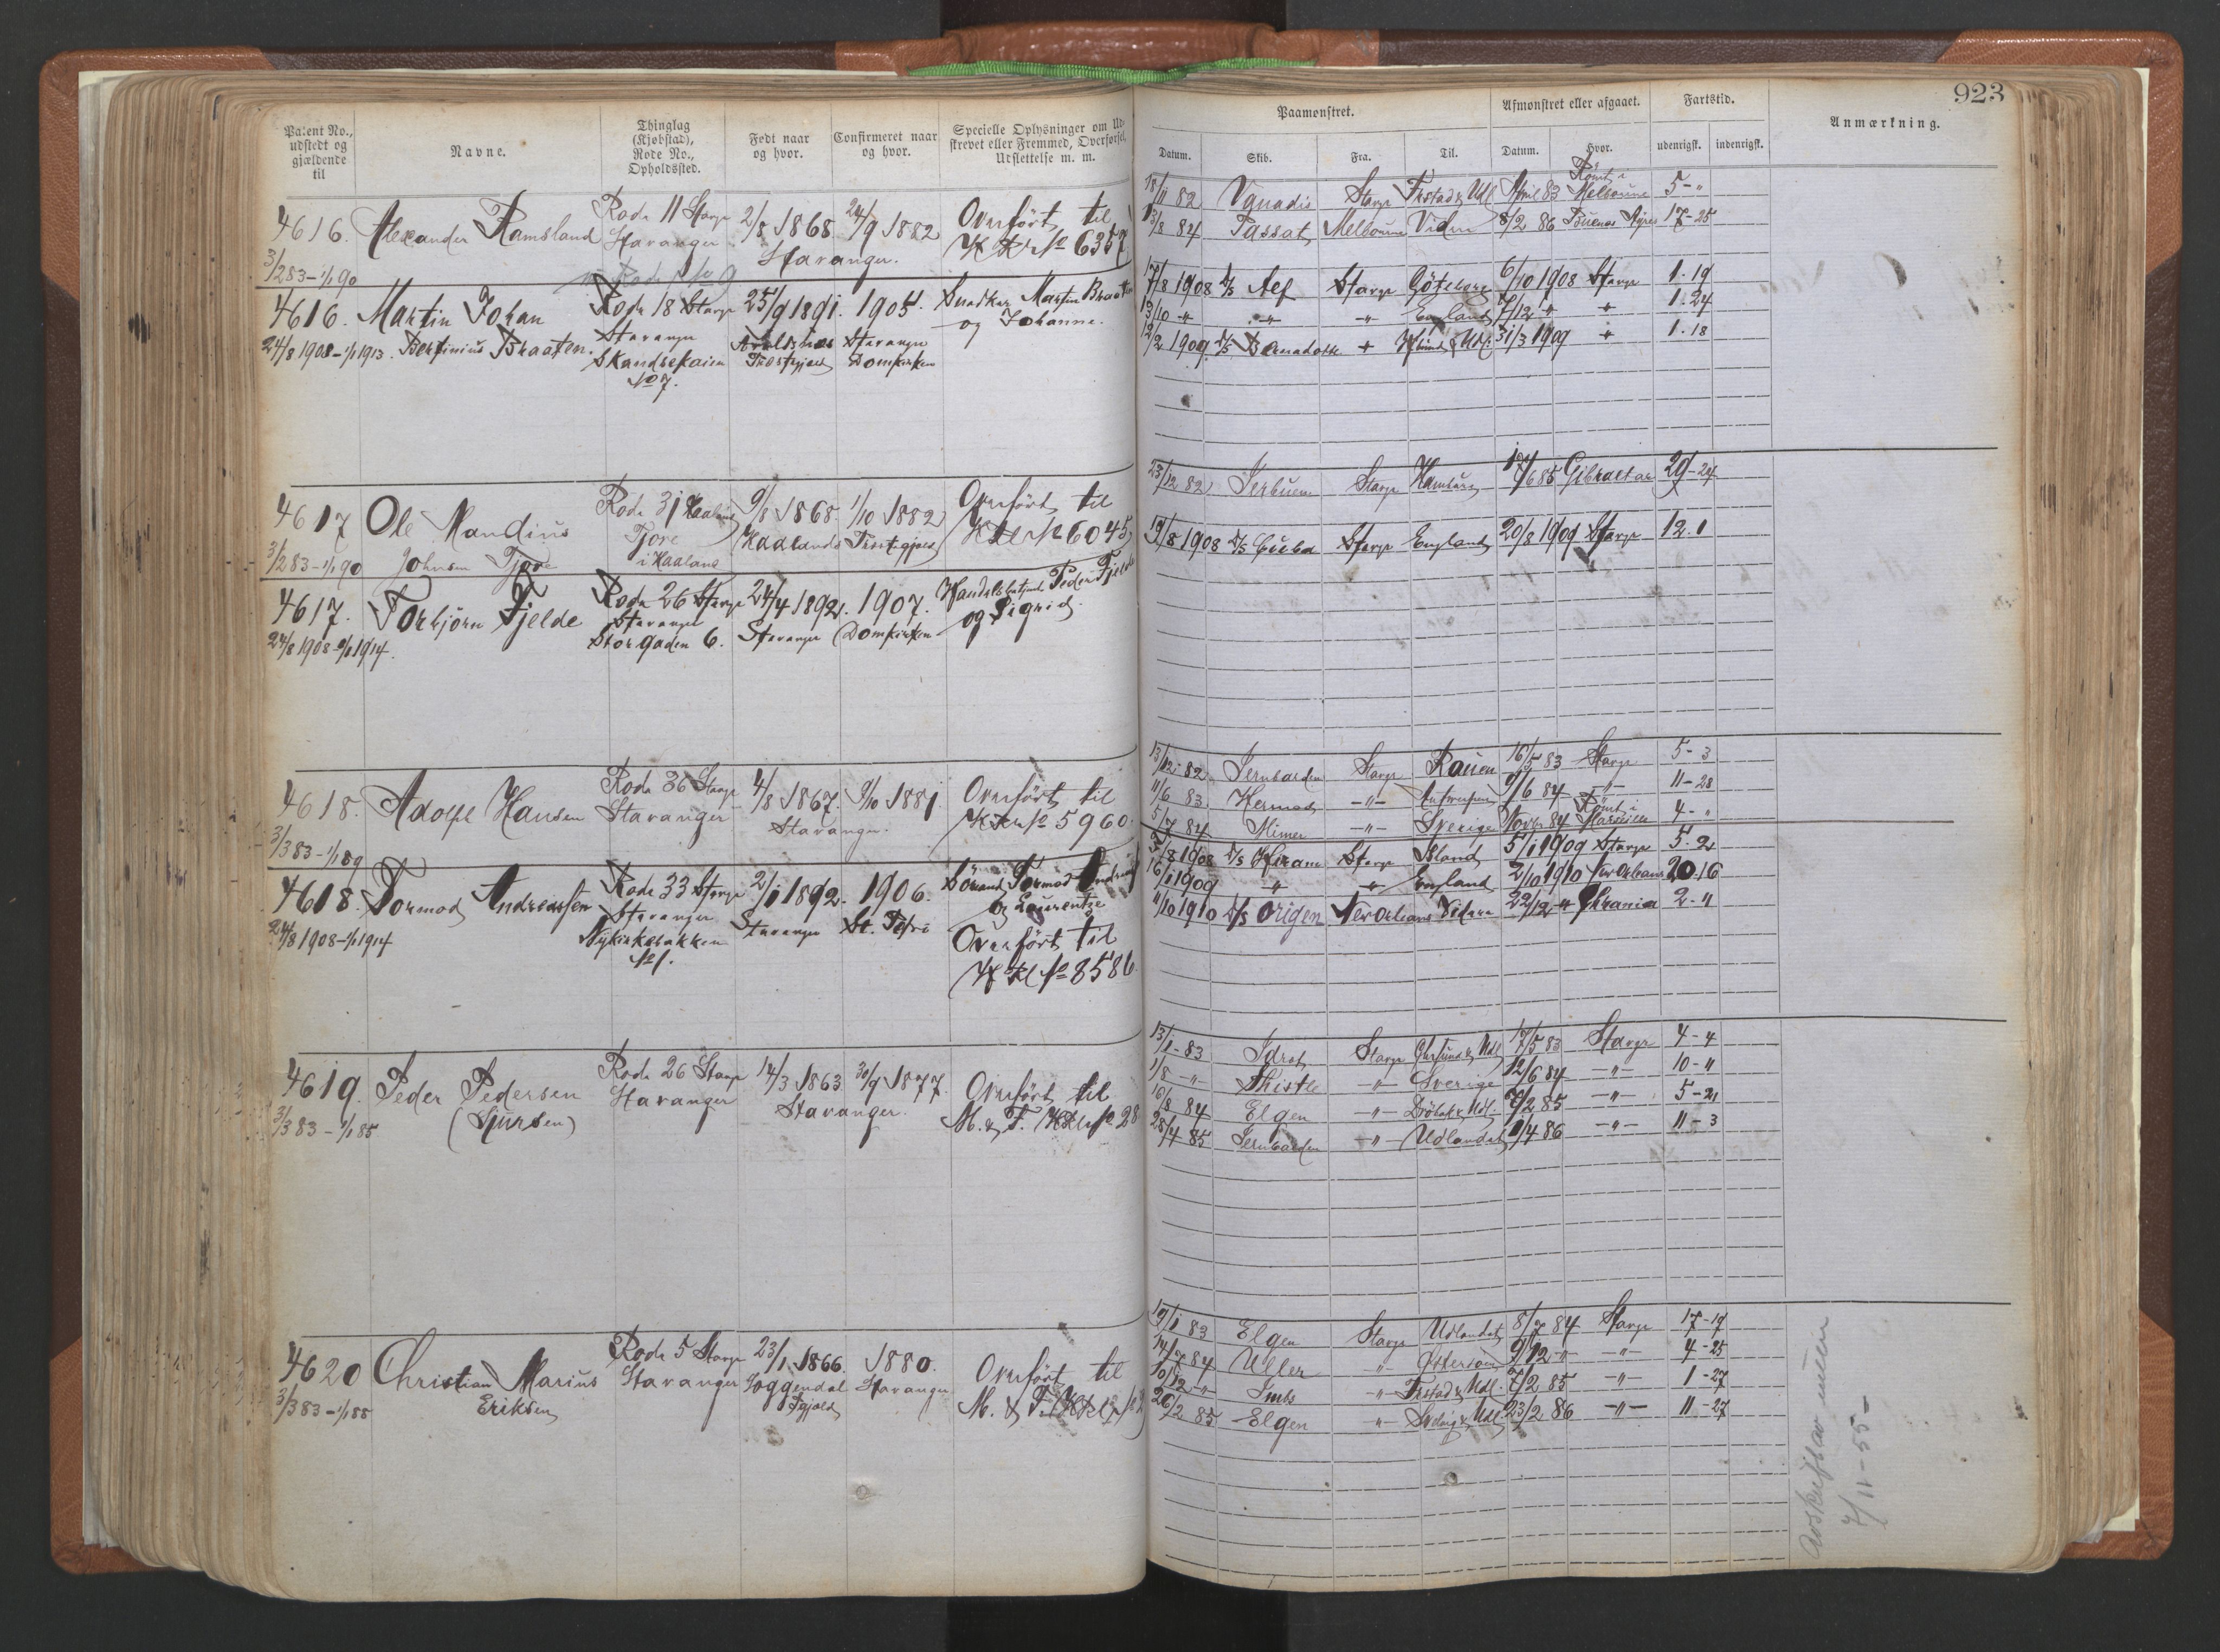 923
Patent No., udstedt og gjældende til
Navne.
Thinglag (Kjøbstad), Rode No., Opholdssted.
Født naar og hvor.
Confirmeret naar og hvor.
Specielle Oplysninger om Udskrevet eller Fremmed, Overførsel, Udslettelse m. m.
Paamønstret.
Afmønstret eller afgaaet.
Fartstid.
Anmærkning.
Datum. Skib. Fra. Til. Datum. Hvor. udenrigsk. indenrigsk.
4616. Alexander Ramsland Rode 11 Stavgr 2/8 1868. 24/9 1882 Overført til
Stavanger Stavanger. H Kl No 6357
3/2 83 - 1/1 90
18/11 82 Vanadis Stavgr Frstad & Udl April 83 Rømt i Melbourne 5 - "
13/8 84 Passat Melbourne Videre 8/2 86 Buenos Ayres 17-25
4616. Martin Johan Rode 18 Stavgr 25/9 1891. 1905. Snedker Martin Braaten
24/8 1908 - 1/1 1913. Bertinius Braaten. Stavanger Avaldsnes Stavanger og Johanne.
Skandsekaien Præstegjæld Domkirken
No 7.
17/8 1908 D/S Alf Stavgr Göteborg 6/10 1908 Stavgr 1. 19
13/10 " " " England 7/12 " " 1. 24
12/2 1909 D/S Bernadotte " & Udl. 31/3 1909 " 1. 18
4617 Ole Mandius Rode 31 Haaland 9/8 1868. 1/10 1882 Overført til
Johnsen Tjore Tjore Haalands Præstegjæld H Kl No 6045
3/2 83 - 1/1 90 i Haaland
23/12 82 Jerbuen Stavgr Hamburg 17/6 85 Gibraltar 29-24
4617. Torbjørn Fjelde Rode 26 Stavgr 24/4 1892. 1907. Peder Fjelde
24/8 1908 - 1/1 1914. Stavanger Stavanger Domkirken og Sigrid.
Storgaden 6.
19/8 1908 D/S Cuba Stavgr England 20/8 1909 Stavgr 12. 1
4618. Adolf Hansen Rode 36 Stavgr 4/8 1867. 9/10 1881. Overført til
3/3 83 - 1/1 89 Stavanger Stavanger. H Kl No 5960.
13/12 82 Jernbarden Stavgr Rouen 16/5 83 Stavgr 5 - 3
11/6 83 Hermod - " - Antwerpen 9/6 84 - " - 11 - 28
5/7 84 Mimer - " - Sverige Novbr 84 Rømt i 4 - "
4618. Tormod Andreassen Rode 33 Stavgr 2/1 1892. 1906. Tormod
24/8 1908 - 1/1 1914 Stavanger Stavanger St. Petri og Laurentze
Nykirkebakken Overført til
No 1. H Kl No 8586.
/8 1908 D/S Hiram Stavgr Island 5/1 1909 Stavgr 5. 2
16/1 1909 " " England 2/10 1910 New Orleans 20. 16
11/10 1910 D/S Origen New Orleans Videre 22/12 " Chrania 2. 11
4619. Peder Pedersen Rode 26 Stavgr 14/3 1863. 30/9 1877. Overført til
3/3 83 - 1/1 85 (Sjursen) Stavanger Stavanger. M. & F. H Kl No 28
13/1 - 83 Idræt Stavgr Chrsund & Udl 17/5 83 Stavgr 4 - 4
1/8 - " Thistle - " - Sverige 12/6 84 - " - 10 - 11
16/8 84 Elgen - " - Drøbak & Udl. 7/2 85 - " - 5 - 21
28/4 85 Jernbarden - " - Udlandet 1/4 86 - " - 11 - 3
4620 Christian Marius Rode 5 Stavgr 23/1 1866. 1880. Overført til
Eriksen Stavanger Soggendal Stavanger M. & F. H Kl No
3/3 83 - 1/1 88 Pgjæld
19/1 83 Elgen Stavgr Udlandet 8/7 84 Stavgr 17 - 19
14/7 84 Uller " Østersøen 9/12 - " - " - 4 - 25
10/12 " " Frstad & Udl. 7/2 85 - " - 1 - 27
26/2 85 Elgen " & Udl. 23/2 86 - " - 11 - 27
7/11 - 55 -